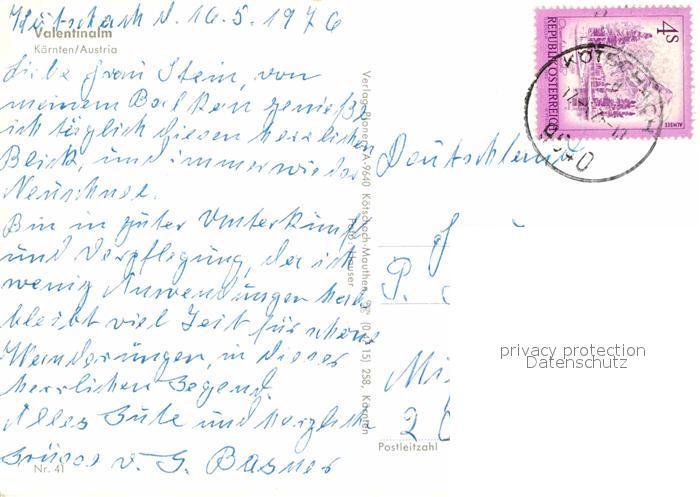 Kötschach d. 16.5.1976
Valentinalm
Kärnten/Austria
Liebe Frau Stein, von
meinem Balkon genieße
ich täglich diesen herrlichen
Blick, und immer wieder
Neuschnee.
Bin in guter Unterkunft
und Verpflegung, da ich
wenig Anwendungen habe
bleibt viel Zeit für schöne
Wanderungen, in dieser
herrlichen Gegend.
Alles Gute und herzliche
Grüsse v. G. Basner
Nr. 41
Verlag A-9640 Kötschach-Mauthen, (0 47 15) 258, Kärnten
Foto: Hauser
4s
REPUBLIK ÖSTERREICH
ALMSEE
KÖTSCHACH
9640
Deutschland
P.
Mi
2
Postleitzahl
privacy protection
Datenschutz